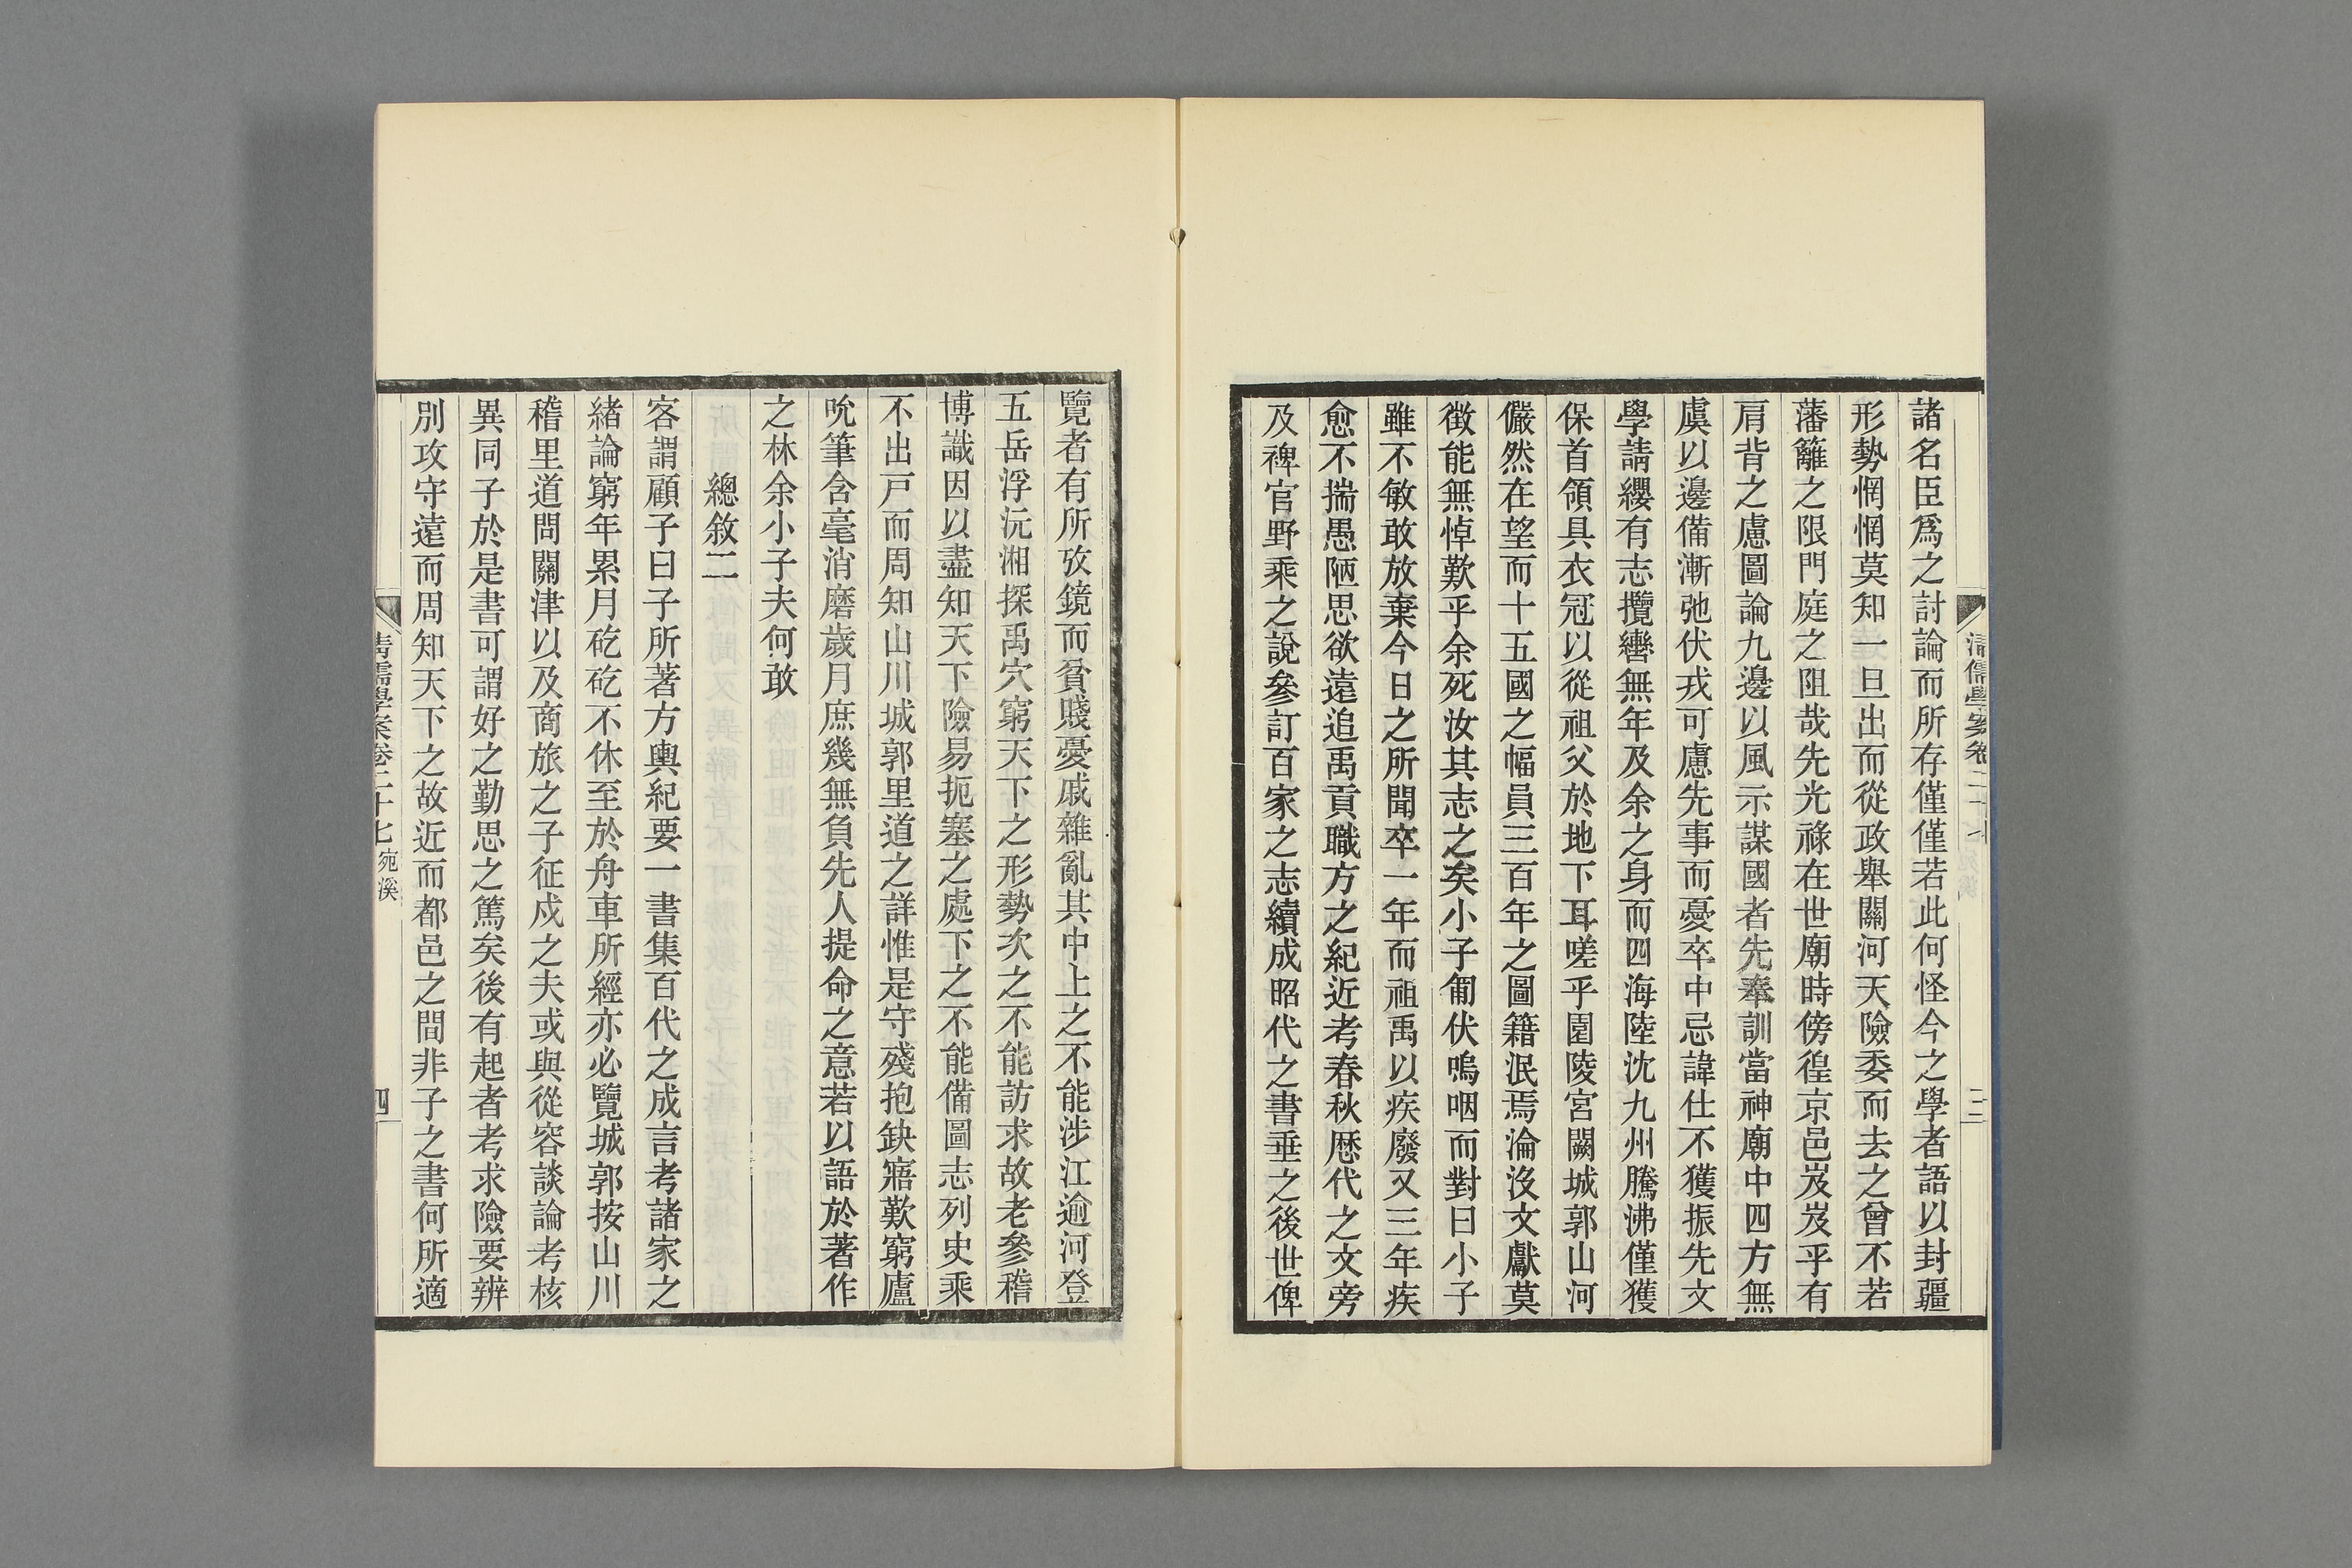 諸名臣爲之討論而所存僅僅若此何怪今之學者語以封疆
形勢惘惘莫知一旦出而從政舉關河天險委而去之曾不若
藩籬之限門庭之阻哉先光祿在世廟時傍徨京邑岌岌乎有
肩背之慮圖論九邊以風示謀國者先奉訓當神廟中四方無
虞以邊備漸弛伏戎可慮先事而憂卒中忌諱仕不獲振先文
學請纓有志攬轡無年及余之身而四海陸沈九州騰沸僅獲
保首領具衣冠以從祖父於地下耳嗟乎園陵宮闕城郭山河
儼然在望而十五國之幅員三百年之圖籍泯焉淪沒文獻莫
徵能無悼歎乎余死汝其志之矣小子匍伏嗚咽而對曰小子
雖不敏敢放棄今日之所聞卒一年而祖禹以疾廢又三年疾
愈不揣愚陋思欲遠追禹貢職方之紀近考春秋歷代之文旁
及稗官野乘之說參訂百家之志續成昭代之書垂之後世俾
清儒學案卷二十七
覽者有所攷鏡而貧賤憂戚雜亂其中上之不能涉江逾河登
五岳浮沅湘探禹穴窮天下之形勢次之不能訪求故老參稽
博識因以盡知天下險易扼塞之處下之不能備圖志列史乘
不出戸而周知山川城郭里道之詳惟是守殘抱缺寤歎窮廬
吮筆含毫消磨歲月庶幾無負先人提命之意若以語於著作
之林余小子夫何敢
總敘二
客謂顧子曰子所著方輿紀要一書集百代之成言考諸家之
緒論窮年累月矻矻不休至於舟車所經亦必覽城郭按山川
稽里道問關津以及商旅之子征戍之夫或與從容談論考核
異同子於是書可謂好之勤思之篤矣後有起者考求險要辨
別攻守遠而周知天下之故近而都邑之間非子之書何所適
清儒學案卷二十七 宛溪
四